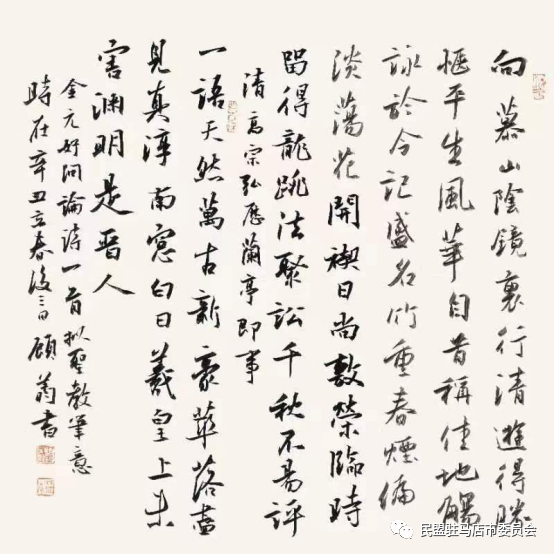 向慕山陰鏡裏行清遊得勝
愜平生風華自昔稱佳地觴
詠於今記盛名竹重春煙偏
淡蕩花開禊日尚敷榮臨時
留得龍跳法聚訟千秋不易評
清高宗弘曆蘭亭即事
一語天然萬古新豪華落盡
見真淳南窗白日羲皇上未
害淵明是晉人
金元好問論詩一首擬聖教筆意
時在辛丑立春後三日顧書
民盟驻马店市委员会